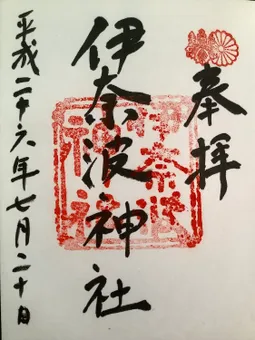 奉拝
伊奈波神社
平成二十六年七月二十日
伊奈波
神社